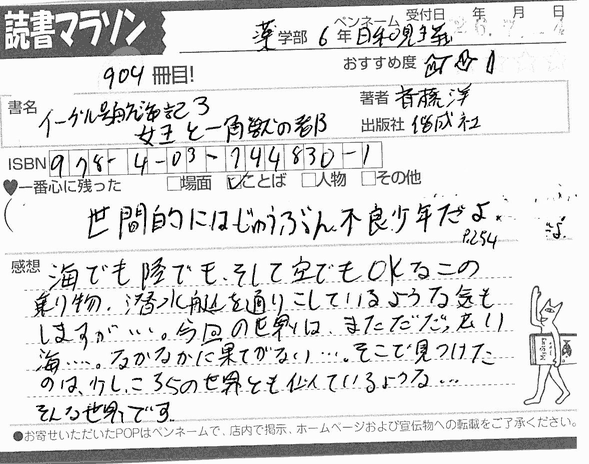 読書マラソン
受付日 年 月 日
ペンネーム
薬学部 6年 日和見主義
904冊目!
おすすめ度
書名 イーゲル号航海記3
女王と一角獣の都
著者 斉藤洋
出版社 偕成社
ISBN 978-4-03-744830-1
♥一番心に残った □場面 ☑ことば □人物 □その他
世間的にはじゅうぶん不良少年だよ。
P.254
感想 海でも陸でも、そして空でもOKなこの
乗り物、潜水艇を通りこしているような気も
しますが…。今回の世界は、まだただ、広い
海…。なかなかに果てがない…。そこで見つけた
のは、少し、こちらの世界とも似ているような…
そんな世界です
●お寄せいただいたPOPはペンネームで、店内で掲示、ホームページおよび宣伝物への転載をご了承ください。